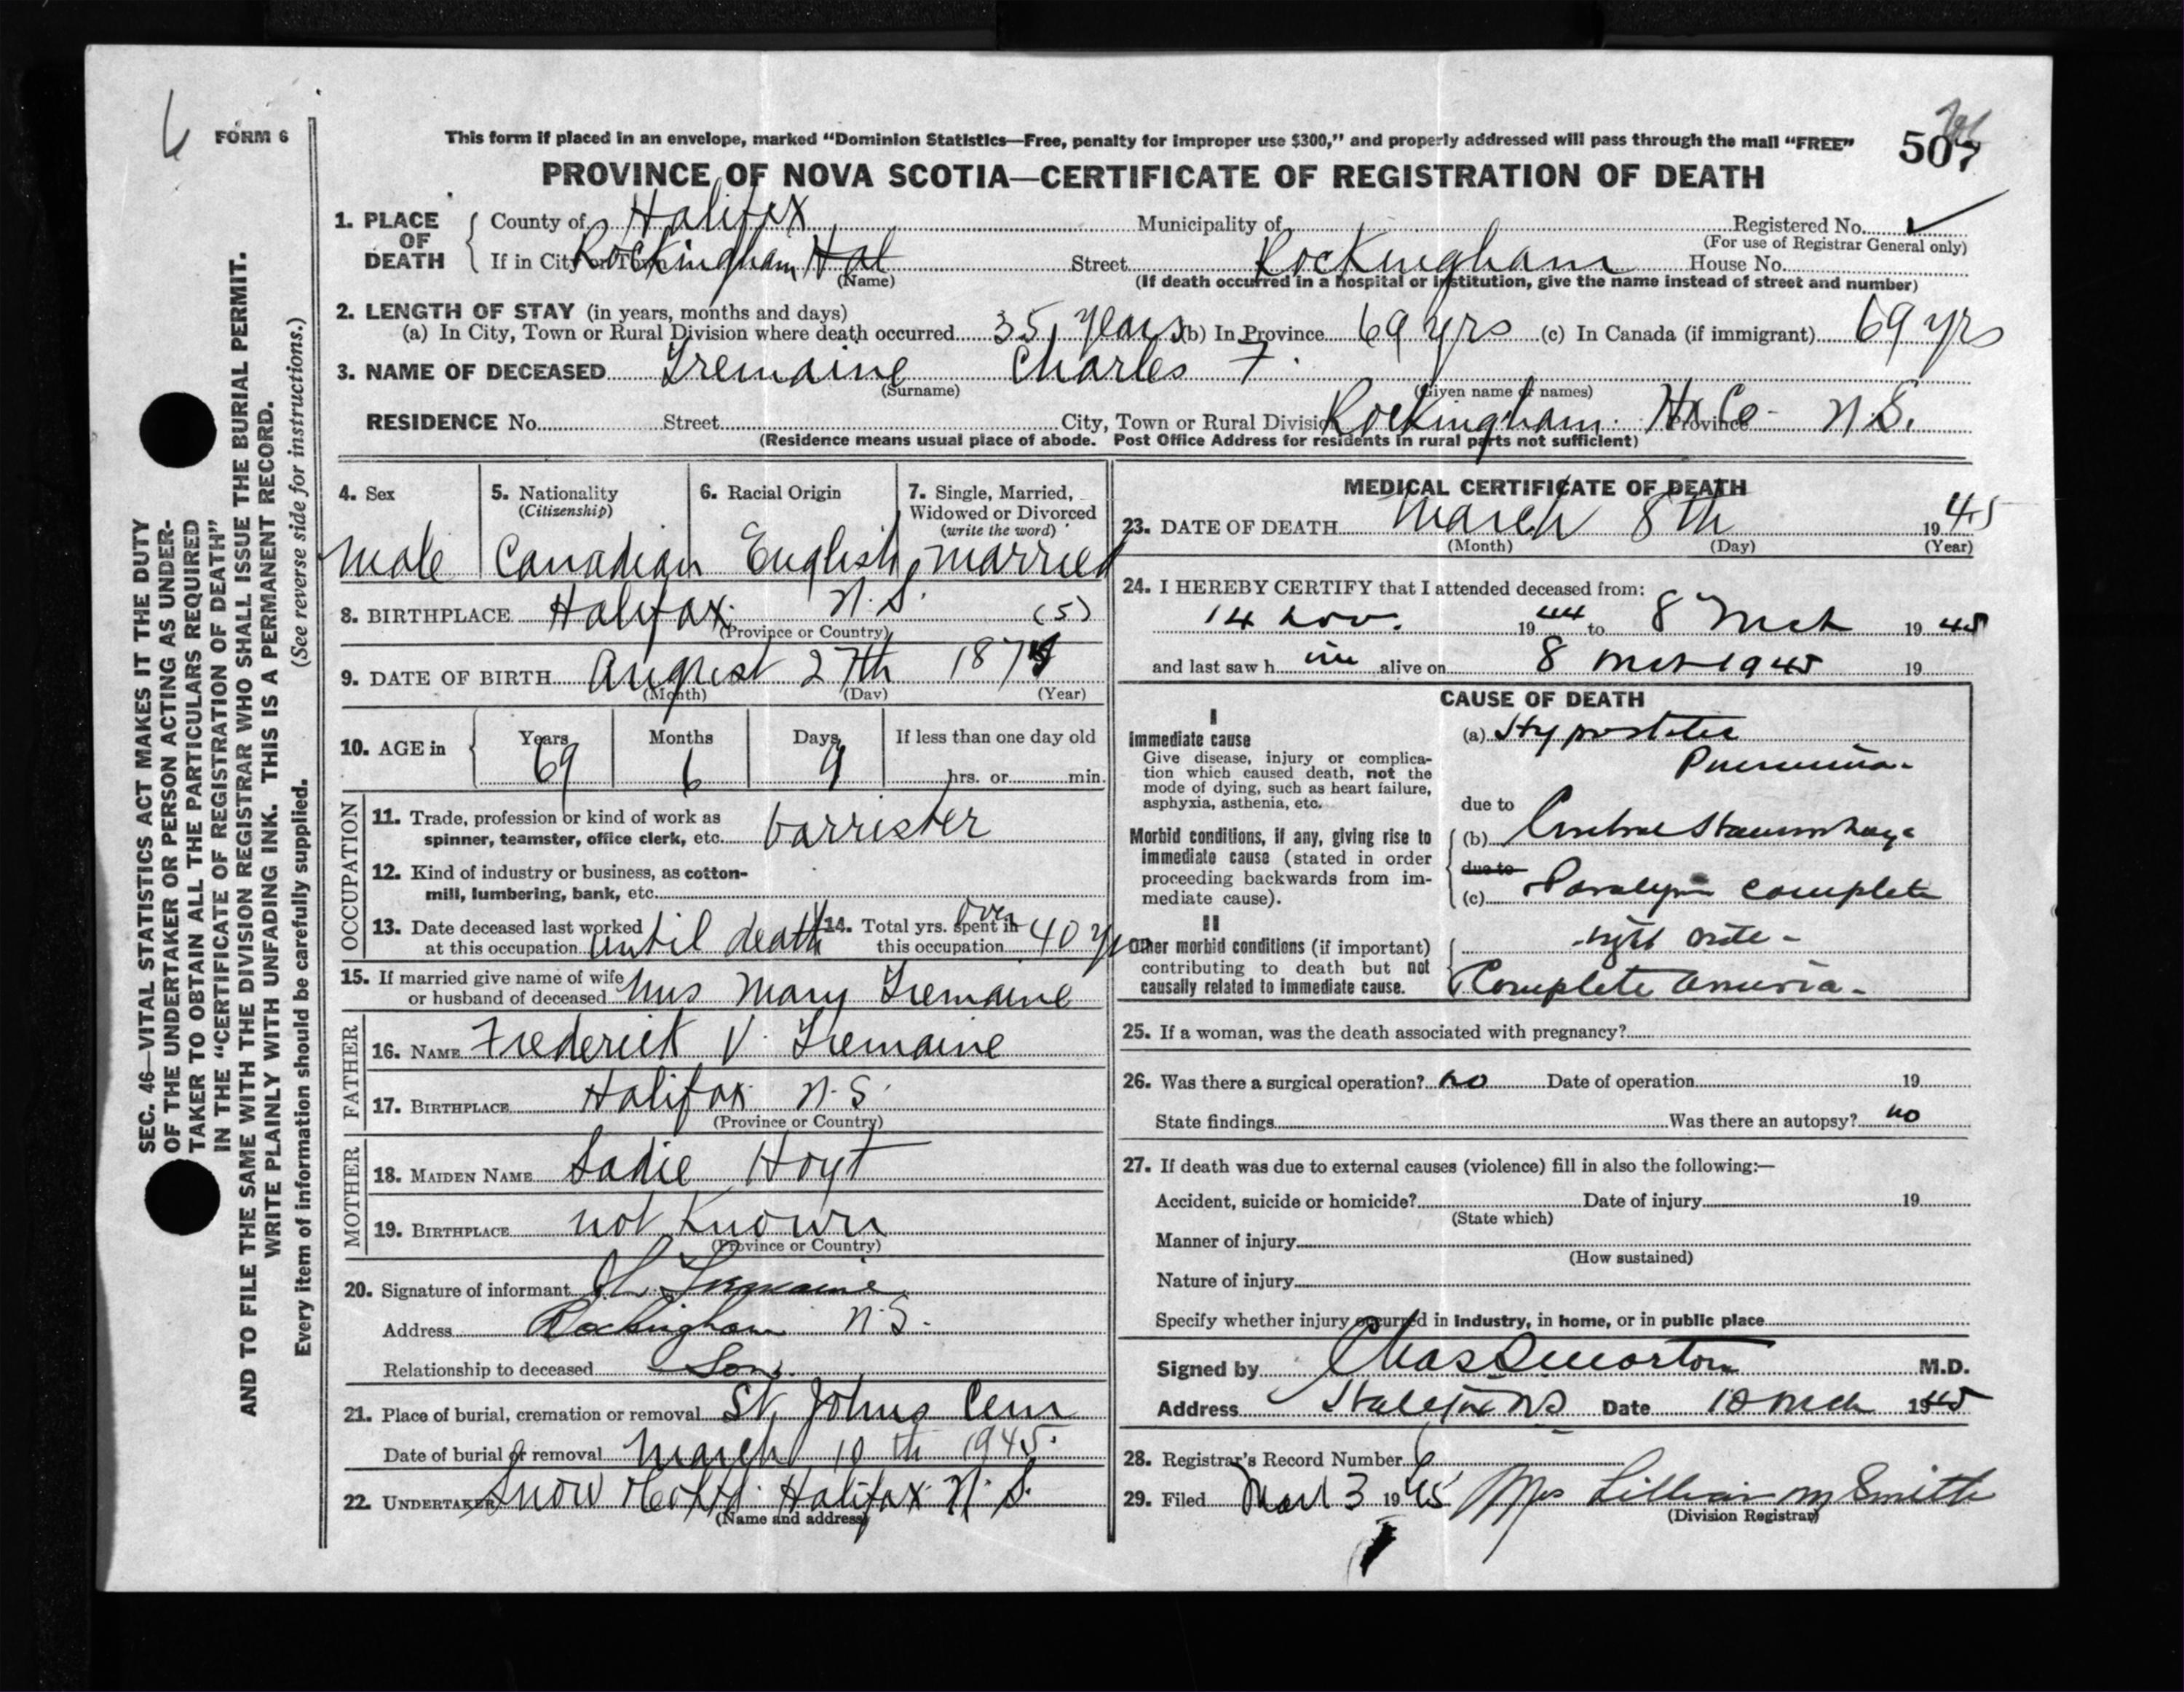 6
FORM 6
This form if placed in an envelope, marked “Dominion Statistics—Free, penalty for improper use $300,” and properly addressed will pass through the mail “FREE”
507
PROVINCE OF NOVA SCOTIA—CERTIFICATE OF REGISTRATION OF DEATH
1. PLACE OF DEATH
County of Halifax Municipality of Registered No. ✓
(For use of Registrar General only)
If in City or Town Rockingham Hal Street Rockingham House No.
(Name) (If death occurred in a hospital or institution, give the name instead of street and number)
2. LENGTH OF STAY (in years, months and days)
(a) In City, Town or Rural Division where death occurred 35 years (b) In Province 69 yrs (c) In Canada (if immigrant) 69 yrs
3. NAME OF DECEASED Tremaine Charles F.
(Surname) (Given name or names)
RESIDENCE No. Street City, Town or Rural Division Rockingham. Hx Co- Province N.S.
(Residence means usual place of abode. Post Office Address for residents in rural parts not sufficient)
4. Sex
male
5. Nationality
(Citizenship)
Canadian
6. Racial Origin
English
7. Single, Married,
Widowed or Divorced
(write the word)
married
8. BIRTHPLACE Halifax. N.S. (5)
(Province or Country)
9. DATE OF BIRTH August 27th 187
(Month) (Day) (Year)
10. AGE in
Years Months Days If less than one day old
69 6 9 hrs. or min.
OCCUPATION
11. Trade, profession or kind of work as
spinner, teamster, office clerk, etc. barrister
12. Kind of industry or business, as cotton-
mill, lumbering, bank, etc.
13. Date deceased last worked
at this occupation until death
14. Total yrs. spent in
this occupation over 40 yrs
15. If married give name of wife
or husband of deceased Mrs Mary Tremaine
FATHER
16. NAME Frederick V. Tremaine
17. BIRTHPLACE Halifax. N.S.
(Province or Country)
MOTHER
18. MAIDEN NAME Sadie Hoyt
19. BIRTHPLACE not known
(Province or Country)
20. Signature of informant Tremaine
Address Rockingham N.S.
Relationship to deceased Son.
21. Place of burial, cremation or removal St. Johns Cem
Date of burial or removal March 10th 1945.
22. UNDERTAKER Snow & Co Ltd. Halifax N.S.
(Name and address)
MEDICAL CERTIFICATE OF DEATH
23. DATE OF DEATH March 8th 1945
(Month) (Day) (Year)
24. I HEREBY CERTIFY that I attended deceased from:
14 Nov. 1944 to 8 Mch 1945
and last saw h im alive on 8 Mch 1945 19
CAUSE OF DEATH
I
Immediate cause
Give disease, injury or complica-
tion which caused death, not the
mode of dying, such as heart failure,
asphyxia, asthenia, etc.
(a) Hypostatic
Pneumonia.
due to
Morbid conditions, if any, giving rise to
immediate cause (stated in order
proceeding backwards from im-
mediate cause).
(b) Cerebral Haemorrhage
due to
(c) Paralysis complete
right side -
II
Other morbid conditions (if important)
contributing to death but not
causally related to immediate cause.
Complete anuria -
25. If a woman, was the death associated with pregnancy?
26. Was there a surgical operation? no Date of operation 19
State findings Was there an autopsy? no
27. If death was due to external causes (violence) fill in also the following:—
Accident, suicide or homicide? Date of injury 19
(State which)
Manner of injury
(How sustained)
Nature of injury
Specify whether injury occurred in industry, in home, or in public place
Signed by Chas S Morton M.D.
Address Halifax NS Date 10 Mch 1945
28. Registrar's Record Number 6
29. Filed Mar 13 1945 Mrs Lillian M Smith
(Division Registrar)
SEC. 46—VITAL STATISTICS ACT MAKES IT THE DUTY
OF THE UNDERTAKER OR PERSON ACTING AS UNDER-
TAKER TO OBTAIN ALL THE PARTICULARS REQUIRED
IN THE “CERTIFICATE OF REGISTRATION OF DEATH”
AND TO FILE THE SAME WITH THE DIVISION REGISTRAR WHO SHALL ISSUE THE BURIAL PERMIT.
WRITE PLAINLY WITH UNFADING INK. THIS IS A PERMANENT RECORD.
Every item of information should be carefully supplied. (See reverse side for instructions.)